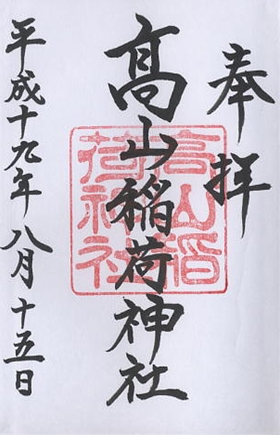 奉拝
髙山稲荷神社
高山稲荷神社
平成十九年八月十五日